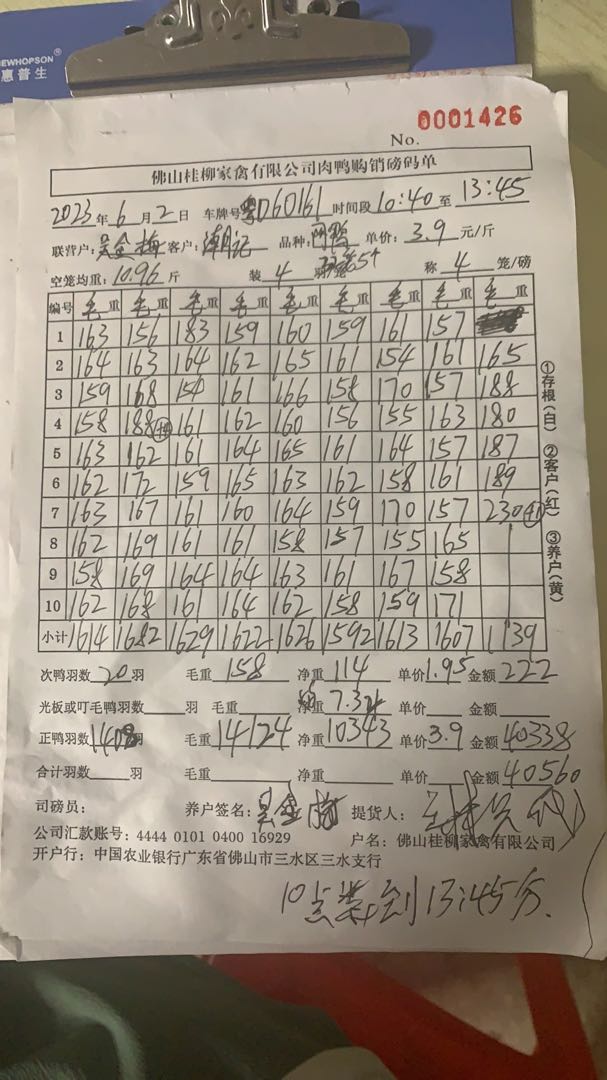 NEWHOPSON®
惠普生
No. 0001426
佛山桂柳家禽有限公司肉鸭购销磅码单
2023年6月2日 车牌号粤D60161 时间段10:40至13:45
联营户:吴金梅 客户: 品种: 单价:3.9元/斤
空笼均重:10.96斤 装4 称4笼/磅
编号 毛重 毛重 毛重 毛重 毛重 毛重 毛重 毛重 毛重
1 163 156 183 159 160 159 161 157
2 164 163 164 162 165 161 154 161 165
3 159 168 154 161 166 158 170 157 188
4 158 188 161 162 160 156 155 163 180
5 163 162 161 164 165 161 164 157 187
6 162 172 159 165 163 162 158 161 189
7 163 167 161 160 164 159 170 157 230
8 162 169 161 161 158 157 155 165
9 158 169 164 164 163 161 167 158
10 162 168 161 164 162 158 159 171
小计 1614 1682 1629 1622 1626 1592 1613 1607 1139
①存根(白) ②客户(红) ③养户(黄)
次鸭羽数20羽 毛重158 净重114 单价1.95 金额222
光板或叮毛鸭羽数 羽 毛重 净重7.34 单价 金额
正鸭羽数1408羽 毛重14124 净重10343 单价3.9 金额40338
合计羽数 羽 毛重 净重 单价 金额40560
司磅员: 养户签名:吴金梅 提货人:
公司汇款账号:4444 0101 0400 16929 户名:佛山桂柳家禽有限公司
开户行:中国农业银行广东省佛山市三水区三水支行
10点装到13:45分.